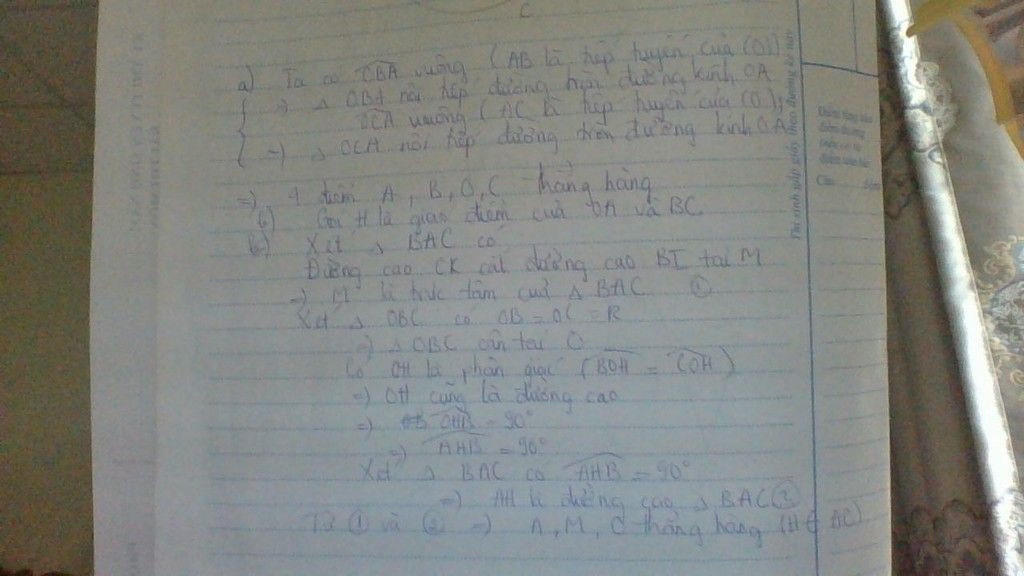 C
a) Ta có OBA vuông (AB là tiếp tuyến của (O))
=> △ OBA nội tiếp đường tròn đường kính OA
OCA vuông (AC là tiếp tuyến của (O))
=> △ OCA nội tiếp đường tròn đường kính OA
=> 4 điểm A, B, O, C thẳng hàng
b) Gọi H là giao điểm của OA và BC
b) Xét △ BAC có
Đường cao CK cắt đường cao BI tại M
=> M là trực tâm của △ BAC ①
Xét △ OBC có OB = OC = R
=> △ OBC cân tại O
Có OH là phân giác (BOH = COH)
=> OH cũng là đường cao
=> OHB = 90°
=> AHB = 90°
Xét △ BAC có AHB = 90°
=> AH là đường cao △ BAC ②
Từ ① và ② => A, M, O thẳng hàng (H ∈ AC)